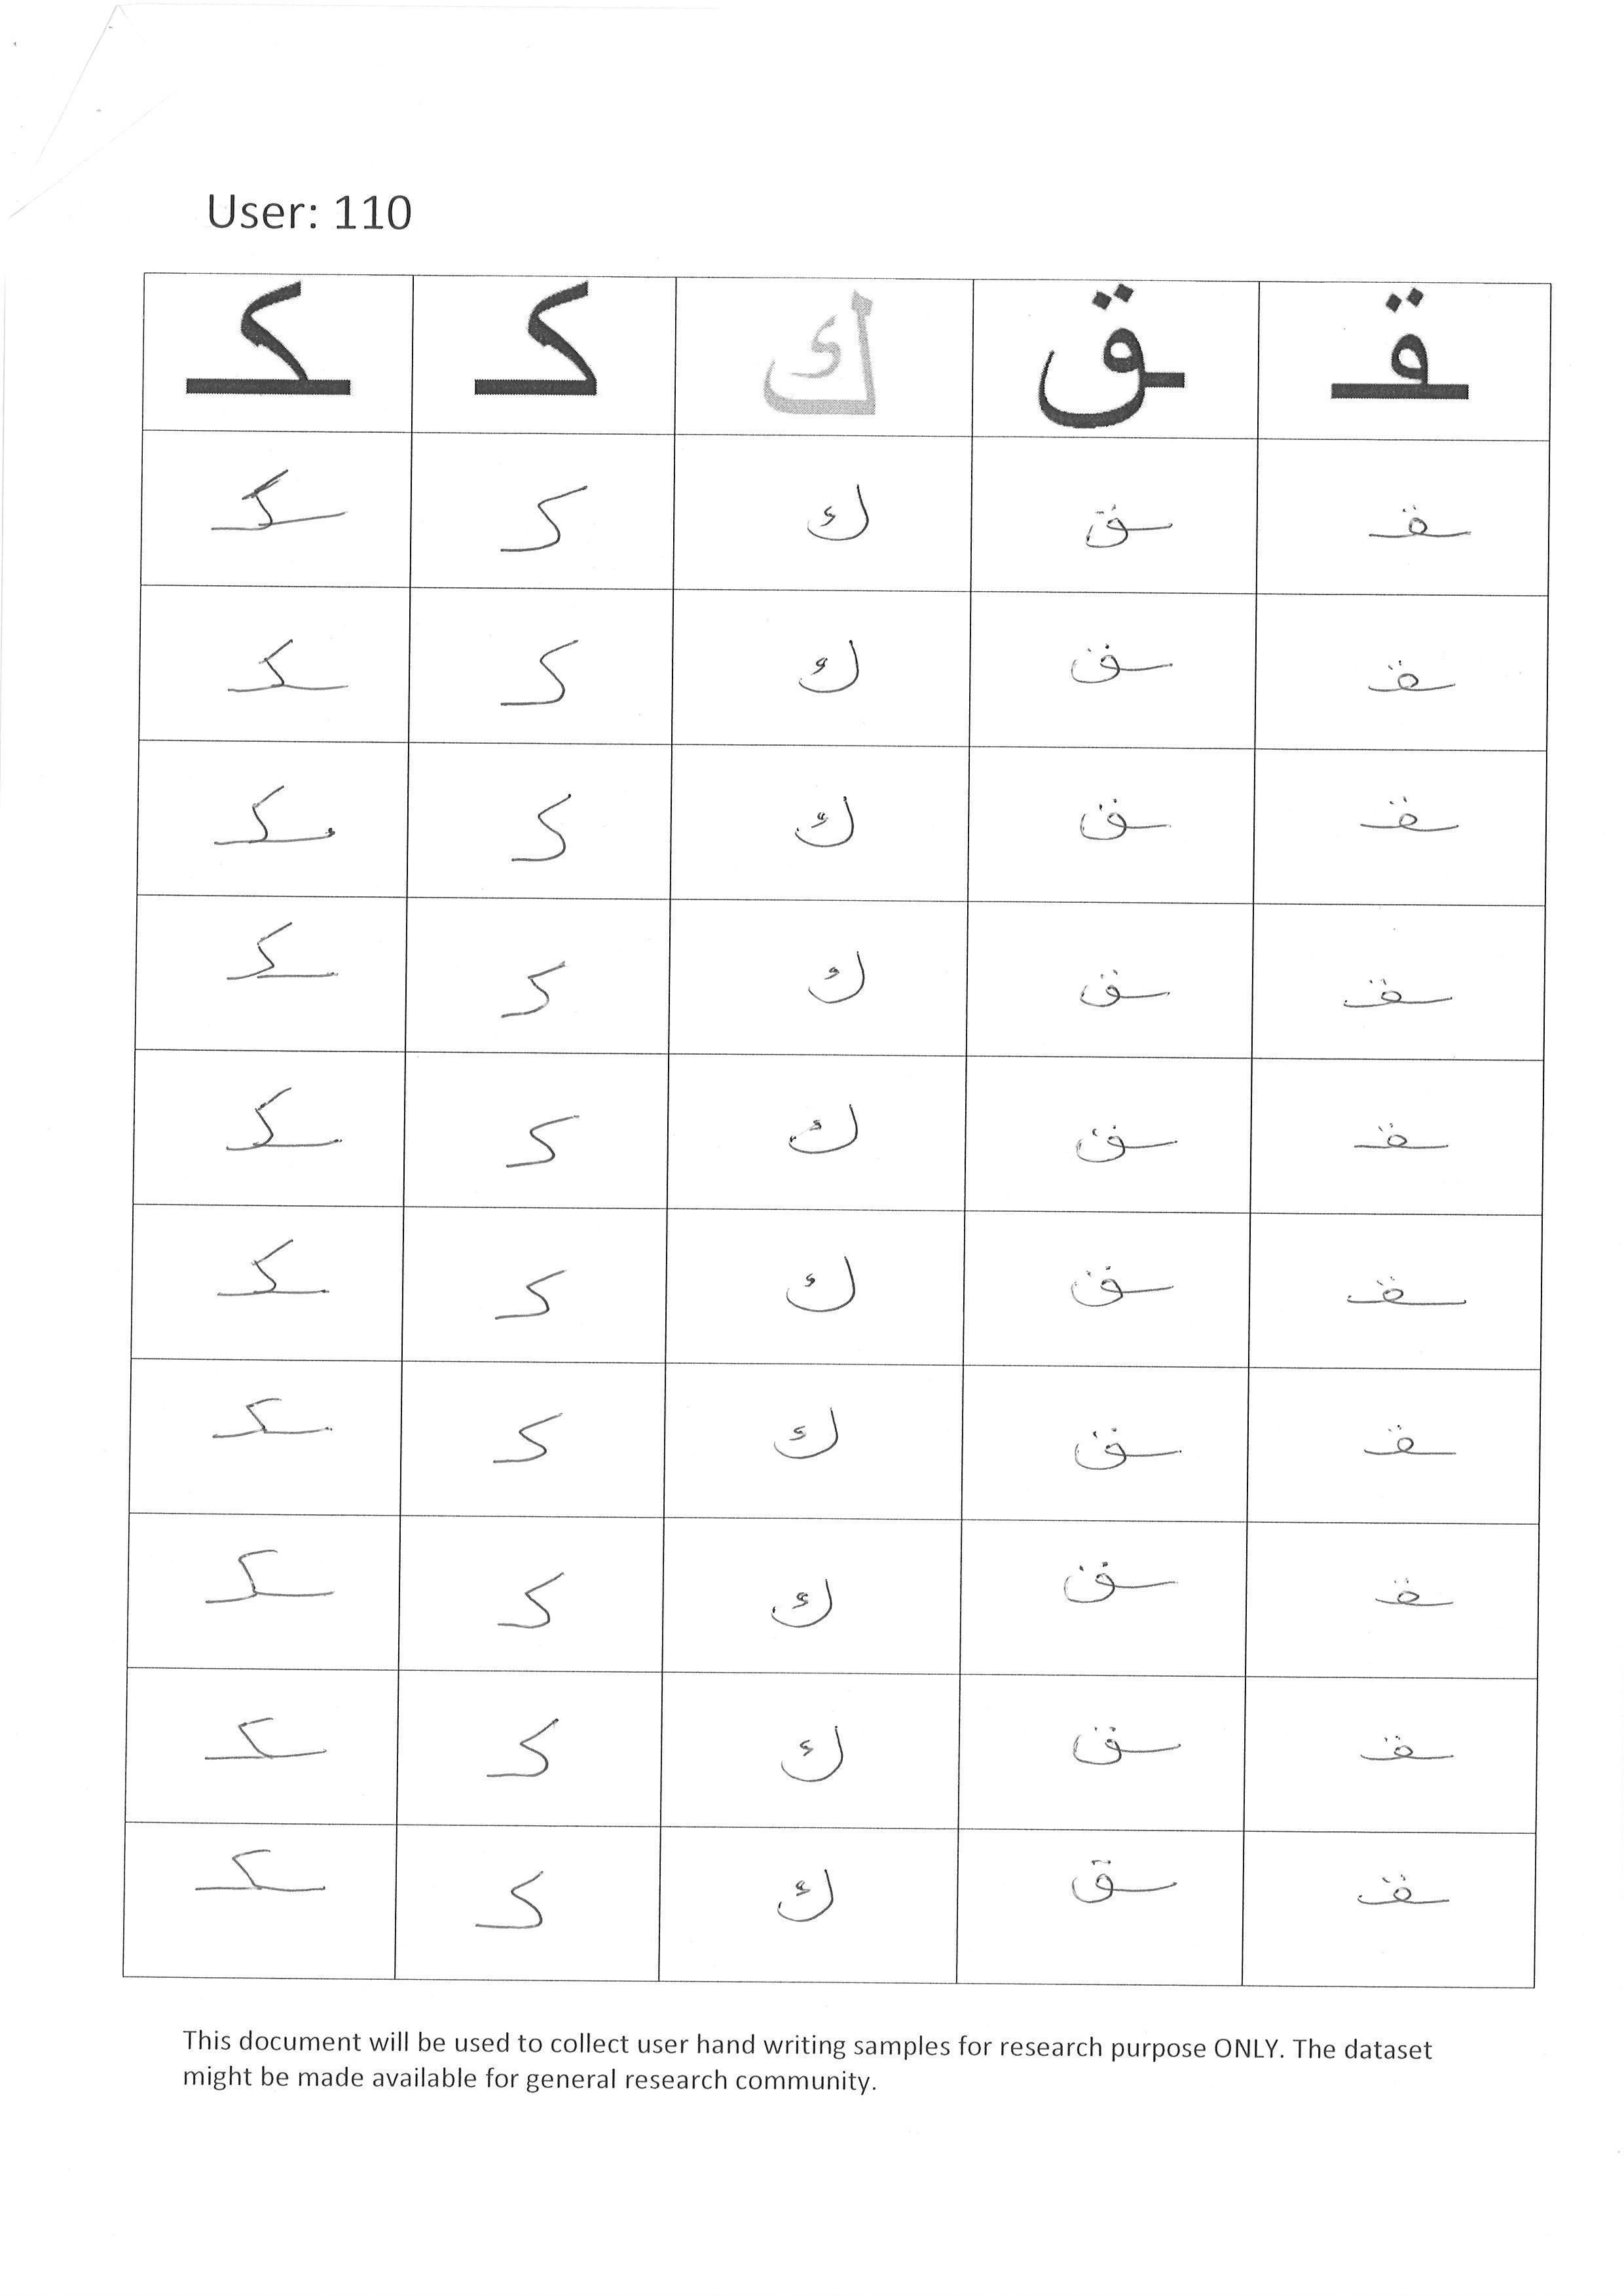 User: 110
ـقـ ـق ك كـ ـكـ
ـقـ ـق ك كـ ـكـ
ـقـ ـق ك كـ ـكـ
ـقـ ـق ك كـ ـكـ
ـقـ ـق ك كـ ـكـ
ـقـ ـق ك كـ ـكـ
ـقـ ـق ك كـ ـكـ
ـقـ ـق ك كـ ـكـ
ـقـ ـق ك كـ ـكـ
ـقـ ـق ك كـ ـكـ
ـقـ ـق ك كـ ـكـ
This document will be used to collect user hand writing samples for research purpose ONLY. The dataset
might be made available for general research community.